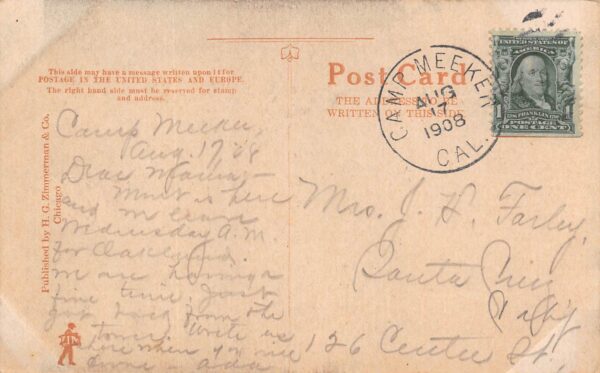 This side may have a message written upon it for
POSTAGE IN THE UNITED STATES AND EUROPE.
The right hand side must be reserved for stamp
and address.
Post Card
THE ADDRESS TO BE
WRITTEN ON THIS SIDE
CAMP MEEKER
AUG
17
1908
CAL.
UNITED STATES OF
AMERICA
FRANKLIN
POSTAGE
1 ONE CENT
Published by H. G. Zimmerman & Co.
Chicago
ZIM
Camp Meeker,
Aug. 17 08
Dear
is here
and we leave
Wednesday A.M.
for Oakland.
We are having a
fine time. Just
got back from the
Write us
here when you
Mrs. J. H. Farley,
Santa Cruz
126 Center St.